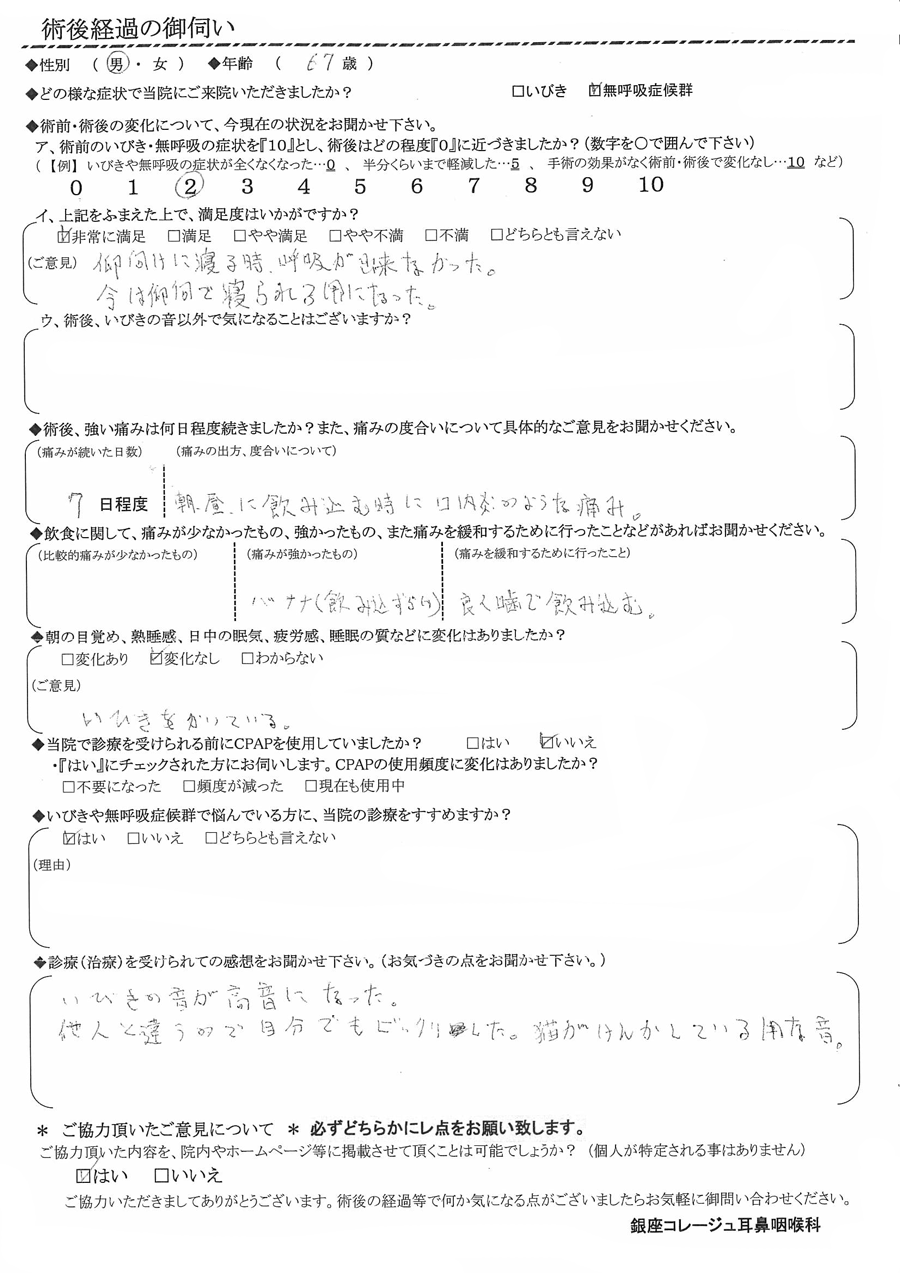 術後経過の御伺い
◆性別 （ 男 ・ 女 ） ◆年齢 （ 67 歳 ）
◆どの様な症状で当院にご来院いただきましたか？ □いびき ☑無呼吸症候群
◆術前・術後の変化について、今現在の状況をお聞かせ下さい。
ア、術前のいびき・無呼吸の症状を『10』とし、術後はどの程度『0』に近づきましたか？（数字を〇で囲んで下さい）
（【例】いびきや無呼吸の症状が全くなくなった…0 、 半分くらいまで軽減した…5 、 手術の効果がなく術前・術後で変化なし…10 など）
0 1 2 3 4 5 6 7 8 9 10
イ、上記をふまえた上で、満足度はいかがですか？
☑非常に満足 □満足 □やや満足 □やや不満 □不満 □どちらとも言えない
（ご意見） 仰向けに寝る時、呼吸が出来なかった。
今は仰向で寝られる用になった。
ウ、術後、いびきの音以外で気になることはございますか？
◆術後、強い痛みは何日程度続きましたか？また、痛みの度合いについて具体的なご意見をお聞かせください。
（痛みが続いた日数） （痛みの出方、度合いについて）
7 日程度 朝.昼.に飲み込む時に口内炎のような痛み。
◆飲食に関して、痛みが少なかったもの、強かったもの、また痛みを緩和するために行ったことなどがあればお聞かせください。
（比較的痛みが少なかったもの） （痛みが強かったもの） （痛みを緩和するために行ったこと）
バナナ(飲み込ずらい) 良く噛で飲み込む。
◆朝の目覚め、熟睡感、日中の眠気、疲労感、睡眠の質などに変化はありましたか？
□変化あり ☑変化なし □わからない
（ご意見）
いびきをかいている。
◆当院で診療を受けられる前にCPAPを使用していましたか？ □はい ☑いいえ
・『はい』にチェックされた方にお伺いします。CPAPの使用頻度に変化はありましたか？
□不要になった □頻度が減った □現在も使用中
◆いびきや無呼吸症候群で悩んでいる方に、当院の診療をすすめますか？
☑はい □いいえ □どちらとも言えない
（理由）
◆診療（治療）を受けられての感想をお聞かせ下さい。（お気づきの点をお聞かせ下さい。）
いびきの音が高音になった。
他人と違うので自分でもビックリした。猫がけんかしている用な音。
＊ ご協力頂いたご意見について ＊ 必ずどちらかにレ点をお願い致します。
ご協力頂いた内容を、院内やホームページ等に掲載させて頂くことは可能でしょうか？（個人が特定される事はありません）
☑はい □いいえ
ご協力いただきましてありがとうございます。術後の経過等で何か気になる点がございましたらお気軽に御問い合わせください。
銀座コレージュ耳鼻咽喉科